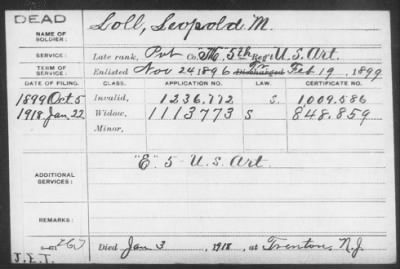 DEAD
NAME OF SOLDIER: Loll, Leopold M.
SERVICE: Late rank, Pvt Co. M, 5th Reg't U.S. Art.
TERM OF SERVICE: Enlisted Nov 24 1896 Discharged Feb 19, 1899
DATE OF FILING. CLASS. APPLICATION NO. LAW. CERTIFICATE NO.
1899 Oct 5 Invalid, 1236.772 S. 1009.586
1918 Jan. 22 Widow, 1113773 S 848.859
Minor,
ADDITIONAL SERVICES: "E" 5 - U.S. Art.
REMARKS:
Died Jan 3, 1918, at Trenton, N.J.
J.E.T.